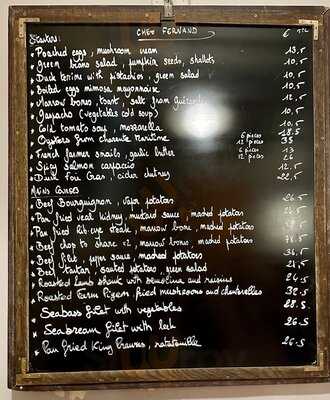 CHEZ FERNAND
Starters: €
• Poached eggs, mushroom cream
• Green beans salad, pumpkin seeds, shallots 10,5
• Duck terrine with pistachios, green salad 10,5
• Boiled eggs mimosa mayonnaise 10,5
• Marrow bone, toast, salt from 12,5
• Gaspacho (vegetables cold soup) 10,5
• Cold tomato soup, mozzarella 10,5
• Oysters from Charente Maritime 6 pieces 18.5
12 pieces 35
• French farmer snails, garlic butter 6 pieces 13
12 pieces 26
• Spicy salmon carpaccio 12,5
• Duck Foie Gras, cider chutney 22,5
Mains Courses
• Beef Bourguignon, potatoes 26.5
• Pan fried veal kidney, mustard sauce, mashed potatoes
• Pan fried rib-eye steak, marrow bone, mashed potatoes
• Beef chop to share x2, marrow bone, mashed potatoes
• Beef filet, pepper sauce, mashed potatoes
• Beef tartar, sauted potatoes, green salad
• Roasted Lamb shank with semolina and raisins 24.5
• Roasted Farm Pigeon fried mushrooms and chanterelles 32.5
• Seabass filet with vegetables 28.5
• Seabream filet with leek 26.5
• Pan fried King Prawns, ratatouille 26.5